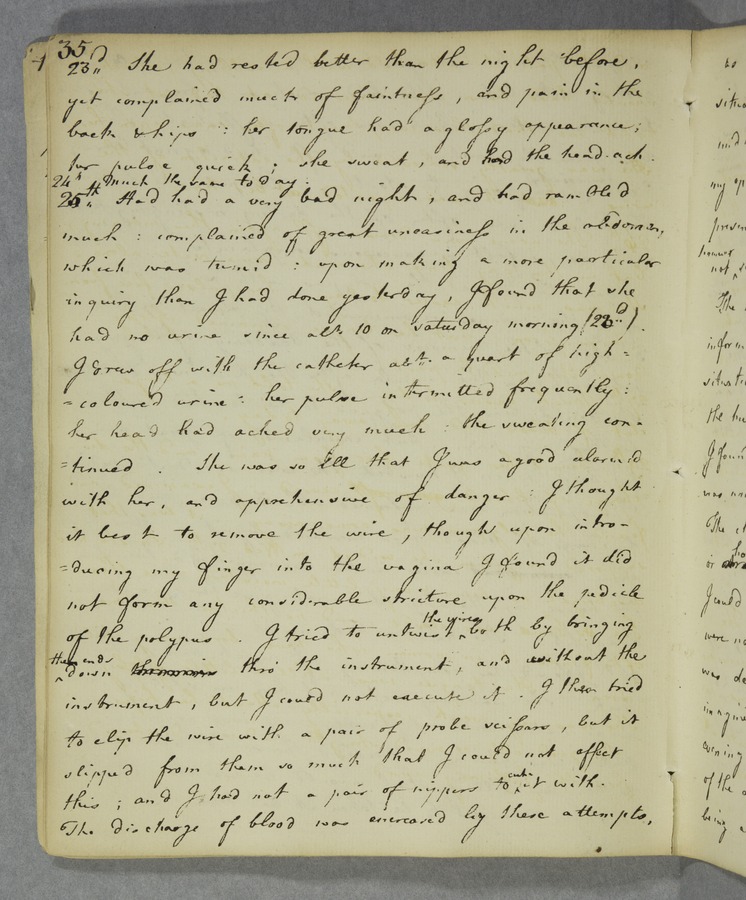 35
23d,, She had rested better than the night before,
yet complained much of faintness, and pain in the
back & hips : her tongue had a glossy appearance;
her pulse quick ; she sweat, and had the head-ach.
24th Much the same to day.
25th,, Had had a very bad night, and had rambled
much : complained of great uneasiness in the abdomen,
which was tumid : upon making a more particular
inquiry than I had done yesterday, I found that she
had no urine since abt. 10 on saturday morning (23d).
I drew off with the catheter abt. a quart of high=
=coloured urine : her pulse intermitted frequently :
her head had ached very much : the sweating con-
=tinued . She was so ill that I was a good alarm'd
with her, and apprehensive of danger : I thought
it best to remove the wire, though upon intro-
=ducing my finger into the vagina I found it did
not form any considerable stricture upon the pedicle
of the polypus . I tried to untwist the wires both by bringing
the ends down thro' the instrument, and without the
instrument, but I could not execute it . I then tried
to clip the wire with a pair of probe scissars, but it
slipped from them so much that I could not effect
this ; and I had not a pair of nippers to cut it with.
The discharge of blood was encreased by these attempts,